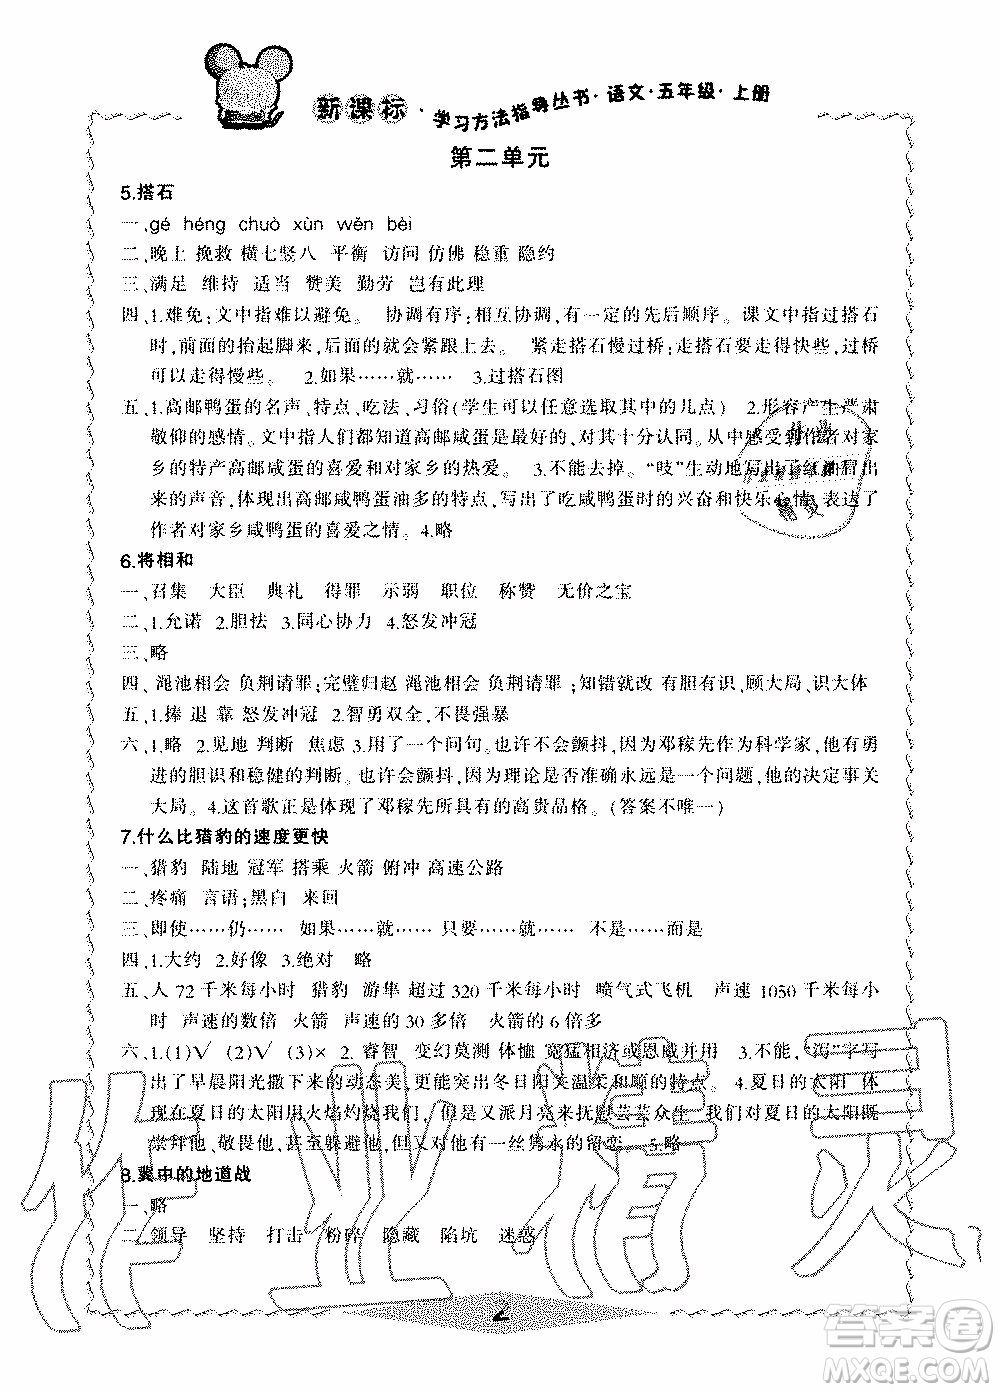 新课标·学习方法指导丛书·语文·五年级·上册
第二单元
5.搭石
一、gé héng chuò xùn wěn bèi
二、晚上 挽救 横七竖八 平衡 访问 仿佛 稳重 隐约
三、满足 维持 适当 赞美 勤劳 岂有此理
四、1.难免:文中指难以避免。 协调有序:相互协调,有一定的先后顺序。课文中指过搭石
时,前面的抬起脚来,后面的就会紧跟上去。 紧走搭石慢过桥:走搭石要走得快些,过桥
可以走得慢些。 2.如果……就…… 3.过搭石图
五、1.高邮鸭蛋的名声、特点、吃法、习俗(学生可以任意选取其中的几点) 2.形容产生严肃
敬仰的感情。文中指人们都知道高邮咸蛋是最好的,对其十分认同。从中感受到作者对家
乡的特产高邮咸蛋的喜爱和对家乡的热爱。 3.不能去掉。“吱”生动地写出了红油冒出
来的声音,体现出高邮咸鸭蛋油多的特点,写出了吃咸鸭蛋时的兴奋和快乐心情,表达了
作者对家乡咸鸭蛋的喜爱之情。4.略
6.将相和
一、召集 大臣 典礼 得罪 示弱 职位 称赞 无价之宝
二、1.允诺 2.胆怯 3.同心协力 4.怒发冲冠
三、略
四、渑池相会 负荆请罪;完璧归赵 渑池相会 负荆请罪;知错就改 有胆有识,顾大局、识大体
五、1.捧 退 靠 怒发冲冠 2.智勇双全,不畏强暴
六、1.略 2.见地 判断 焦虑 3.用了一个问句。也许不会颤抖,因为邓稼先作为科学家,他有勇
进的胆识和稳健的判断。也许会颤抖,因为理论是否准确永远是一个问题,他的决定事关
大局。4.这首歌正是体现了邓稼先所具有的高贵品格。(答案不唯一)
7.什么比猎豹的速度更快
一、猎豹 陆地 冠军 搭乘 火箭 俯冲 高速公路
二、疼痛 言语;黑白 来回
三、即使……仍…… 如果……就…… 只要……就…… 不是……而是
四、1.大约 2.好像 3.绝对 略
五、人 72 千米每小时 猎豹 游隼 超过 320 千米每小时 喷气式飞机 声速 1050 千米每小
时 声速的数倍 火箭 声速的 30 多倍 火箭的 6 倍多
六、1.(1)√ (2)√ (3)× 2. 睿智 变幻莫测 体恤 宽猛相济或恩威并用 3.不能,“泻”字写
出了早晨阳光撒下来的动态美,更能体现冬日阳关温柔和顺的特点。4.夏日的太阳 体
现在夏日的太阳用火焰灼烧我们,但是又派月亮来抚慰芸芸众生 我们对夏日的太阳既
崇拜他、敬畏他,甚至躲避他,但又对他有一丝隽永的留恋 5.略
8.冀中的地道战
一、略
二、领导 坚持 打击 粉碎 隐藏 陷坑 迷惑
2
作业精灵
答案圈
MXQE.COM